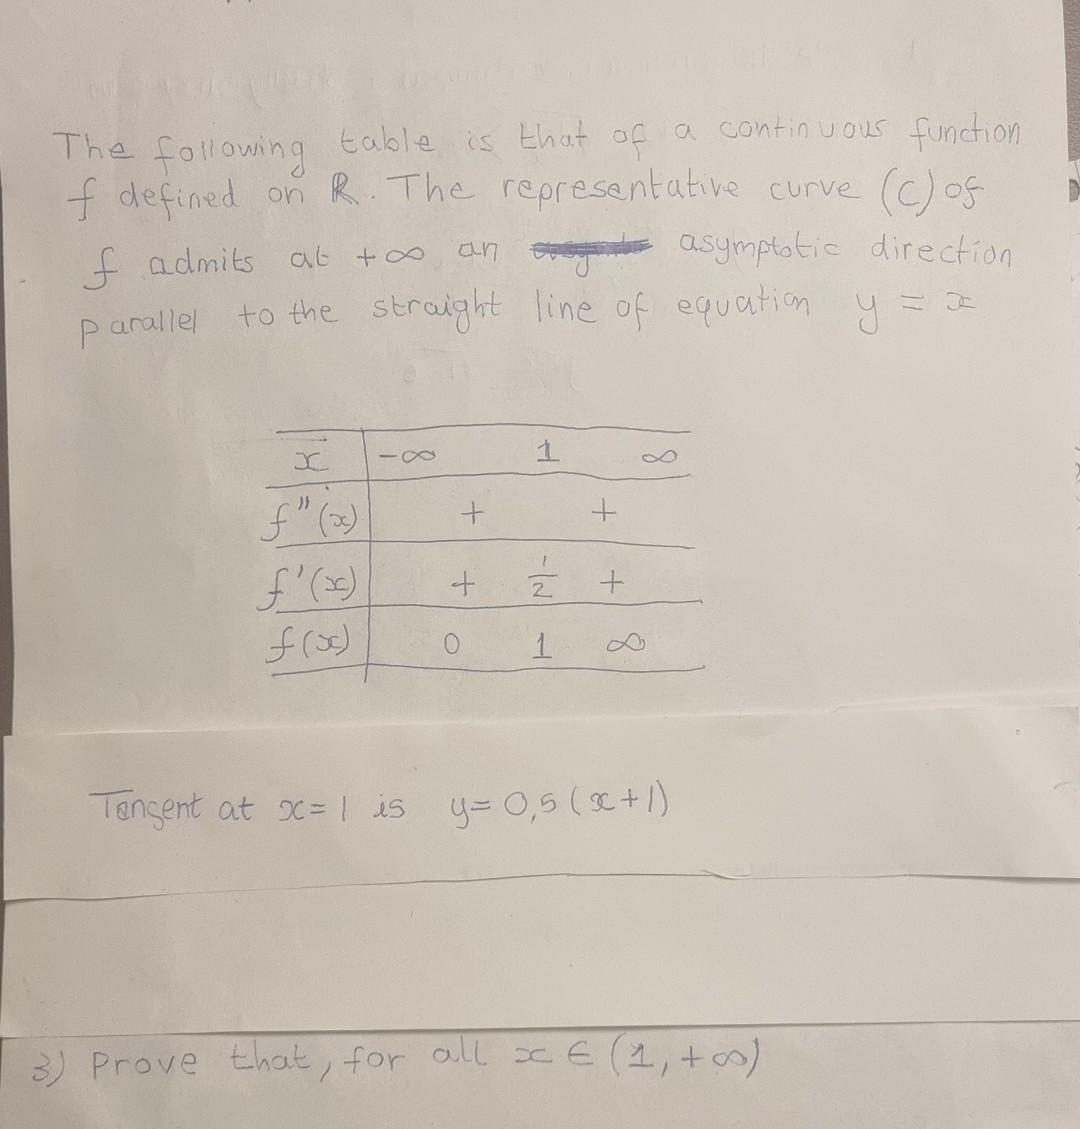 The following table is that of a continuous function
f defined on ℝ. The representative curve (C) of
f admits at +∞ an asymptotic direction
parallel to the straight line of equation y = x
x -∞ 1 ∞
f''(x) + +
f'(x) + 1/2 +
f(x) 0 1 ∞
Tangent at x=1 is y= 0,5 (x+1)
3) Prove that, for all x ∈ (1, +∞)